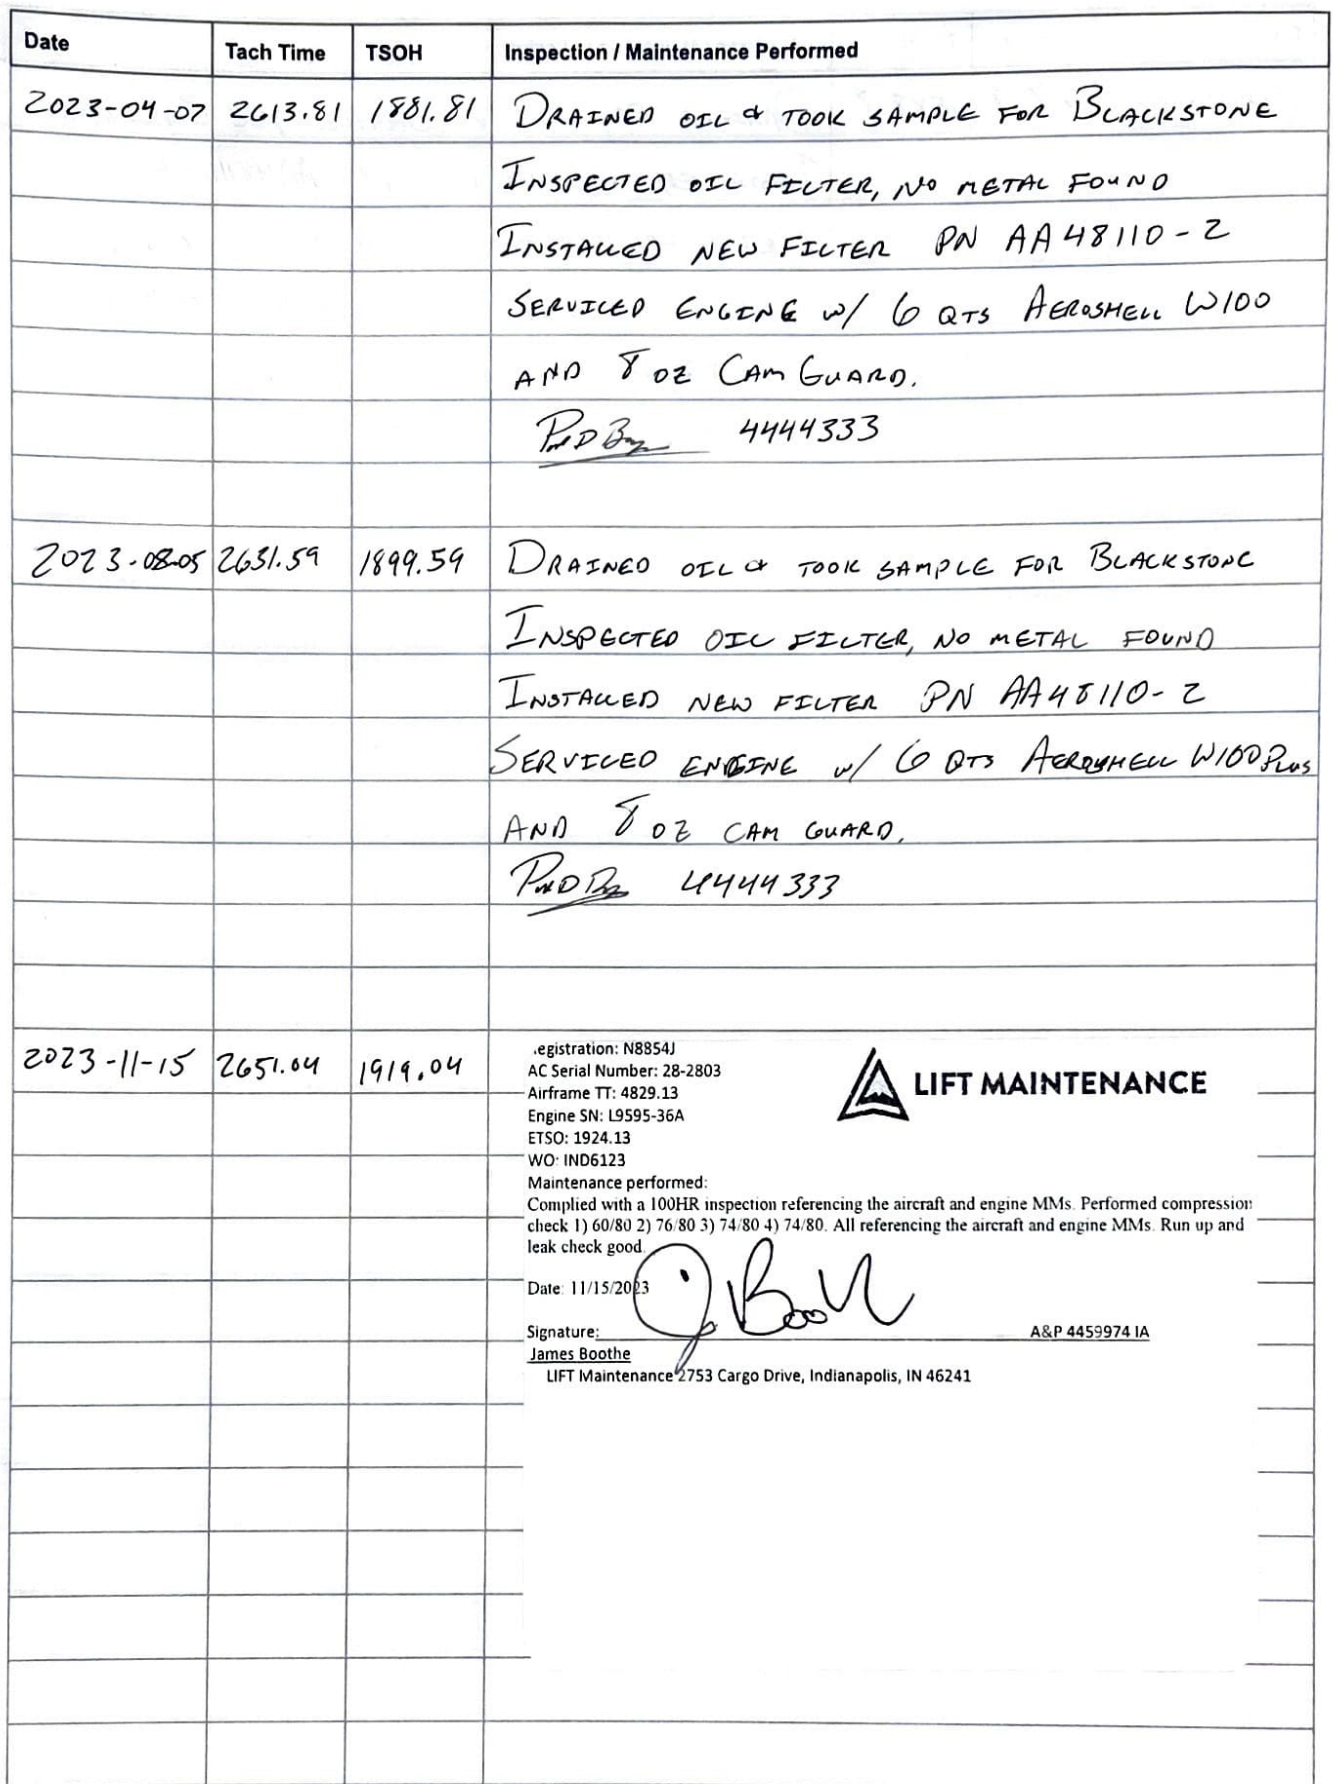 Date Tach Time TSOH Inspection / Maintenance Performed
2023-04-07 2613.81 1881.81 DRAINED OIL & TOOK SAMPLE FOR BLACKSTONE
INSPECTED OIL FILTER, NO METAL FOUND
INSTALLED NEW FILTER PN AA48110-2
SERVICED ENGINE w/ 6 QTS AEROSHELL W100
AND 8 OZ CAM GUARD.
4444333
2023-08-05 2631.59 1899.59 DRAINED OIL & TOOK SAMPLE FOR BLACKSTONE
INSPECTED OIL FILTER, NO METAL FOUND
INSTALLED NEW FILTER PN AA48110-2
SERVICED ENGINE w/ 6 QTS AEROSHELL W100 PLUS
AND 8 OZ CAM GUARD.
4444333
2023-11-15 2651.04 1919.04
.egistration: N8854J
AC Serial Number: 28-2803
Airframe TT: 4829.13
Engine SN: L9595-36A
ETSO: 1924.13
WO: IND6123
LIFT MAINTENANCE
Maintenance performed:
Complied with a 100HR inspection referencing the aircraft and engine MMs. Performed compression
check 1) 60/80 2) 76/80 3) 74/80 4) 74/80. All referencing the aircraft and engine MMs. Run up and
leak check good.
Date: 11/15/2023
Signature: J Booth A&P 4459974 IA
James Boothe
LIFT Maintenance 2753 Cargo Drive, Indianapolis, IN 46241